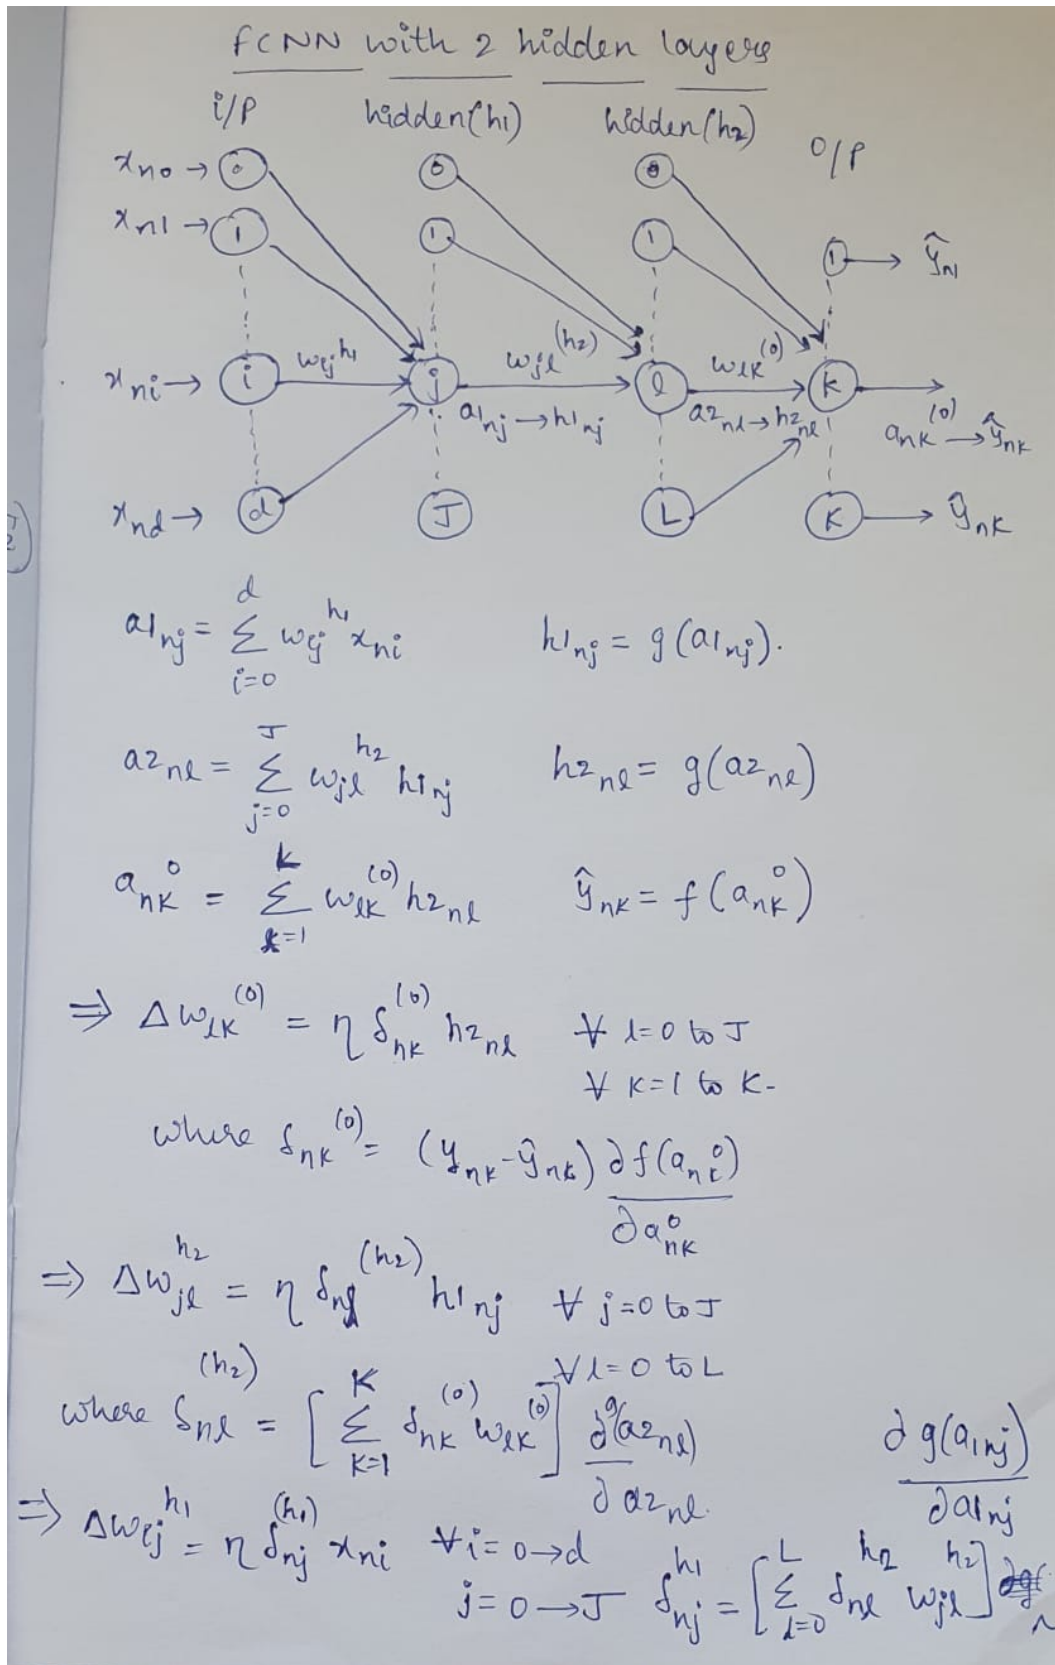 FCNN with 2 hidden layers
i/p hidden(h1) hidden(h2) o/p
x_{n0} → 0 0 0
x_{n1} → 1 1 1 1 → ŷ_{n1}
x_{ni} → i w_{ij}^{h1} j w_{jl}^{(h2)} l w_{lk}^{(0)} k
a1_{nj} → h1_{nj} a2_{nl} → h2_{nl} a_{nk}^{(0)} → ŷ_{nk}
x_{nd} → d J L K → ŷ_{nK}
a1_{nj} = Σ_{i=0}^{d} w_{ij}^{h1} x_{ni} h1_{nj} = g(a1_{nj}).
a2_{nl} = Σ_{j=0}^{J} w_{jl}^{h2} h1_{nj} h2_{nl} = g(a2_{nl})
a_{nk}^{0} = Σ_{k=1}^{K} w_{lk}^{(0)} h2_{nl} ŷ_{nk} = f(a_{nk}^{0})
⇒ Δw_{lk}^{(0)} = η δ_{nk}^{(0)} h2_{nl} ∀ l=0 to J
∀ k=1 to K-
where δ_{nk}^{(0)} = (y_{nk} - ŷ_{nk}) ∂f(a_{nk}^{0}) / ∂a_{nk}^{0}
⇒ Δw_{jl}^{h2} = η δ_{nl}^{(h2)} h1_{nj} ∀ j=0 to J
∀ l=0 to L
where δ_{nl}^{(h2)} = [Σ_{k=1}^{K} δ_{nk}^{(0)} w_{lk}^{(0)}] ∂g(a2_{nl}) / ∂a2_{nl}.
∂g(a1_{nj}) / ∂a1_{nj}
⇒ Δw_{ij}^{h1} = η δ_{nj}^{(h1)} x_{ni} ∀ i=0→d
j=0→J δ_{nj}^{h1} = [Σ_{l=0}^{L} δ_{nl}^{h2} w_{jl}^{h2}]